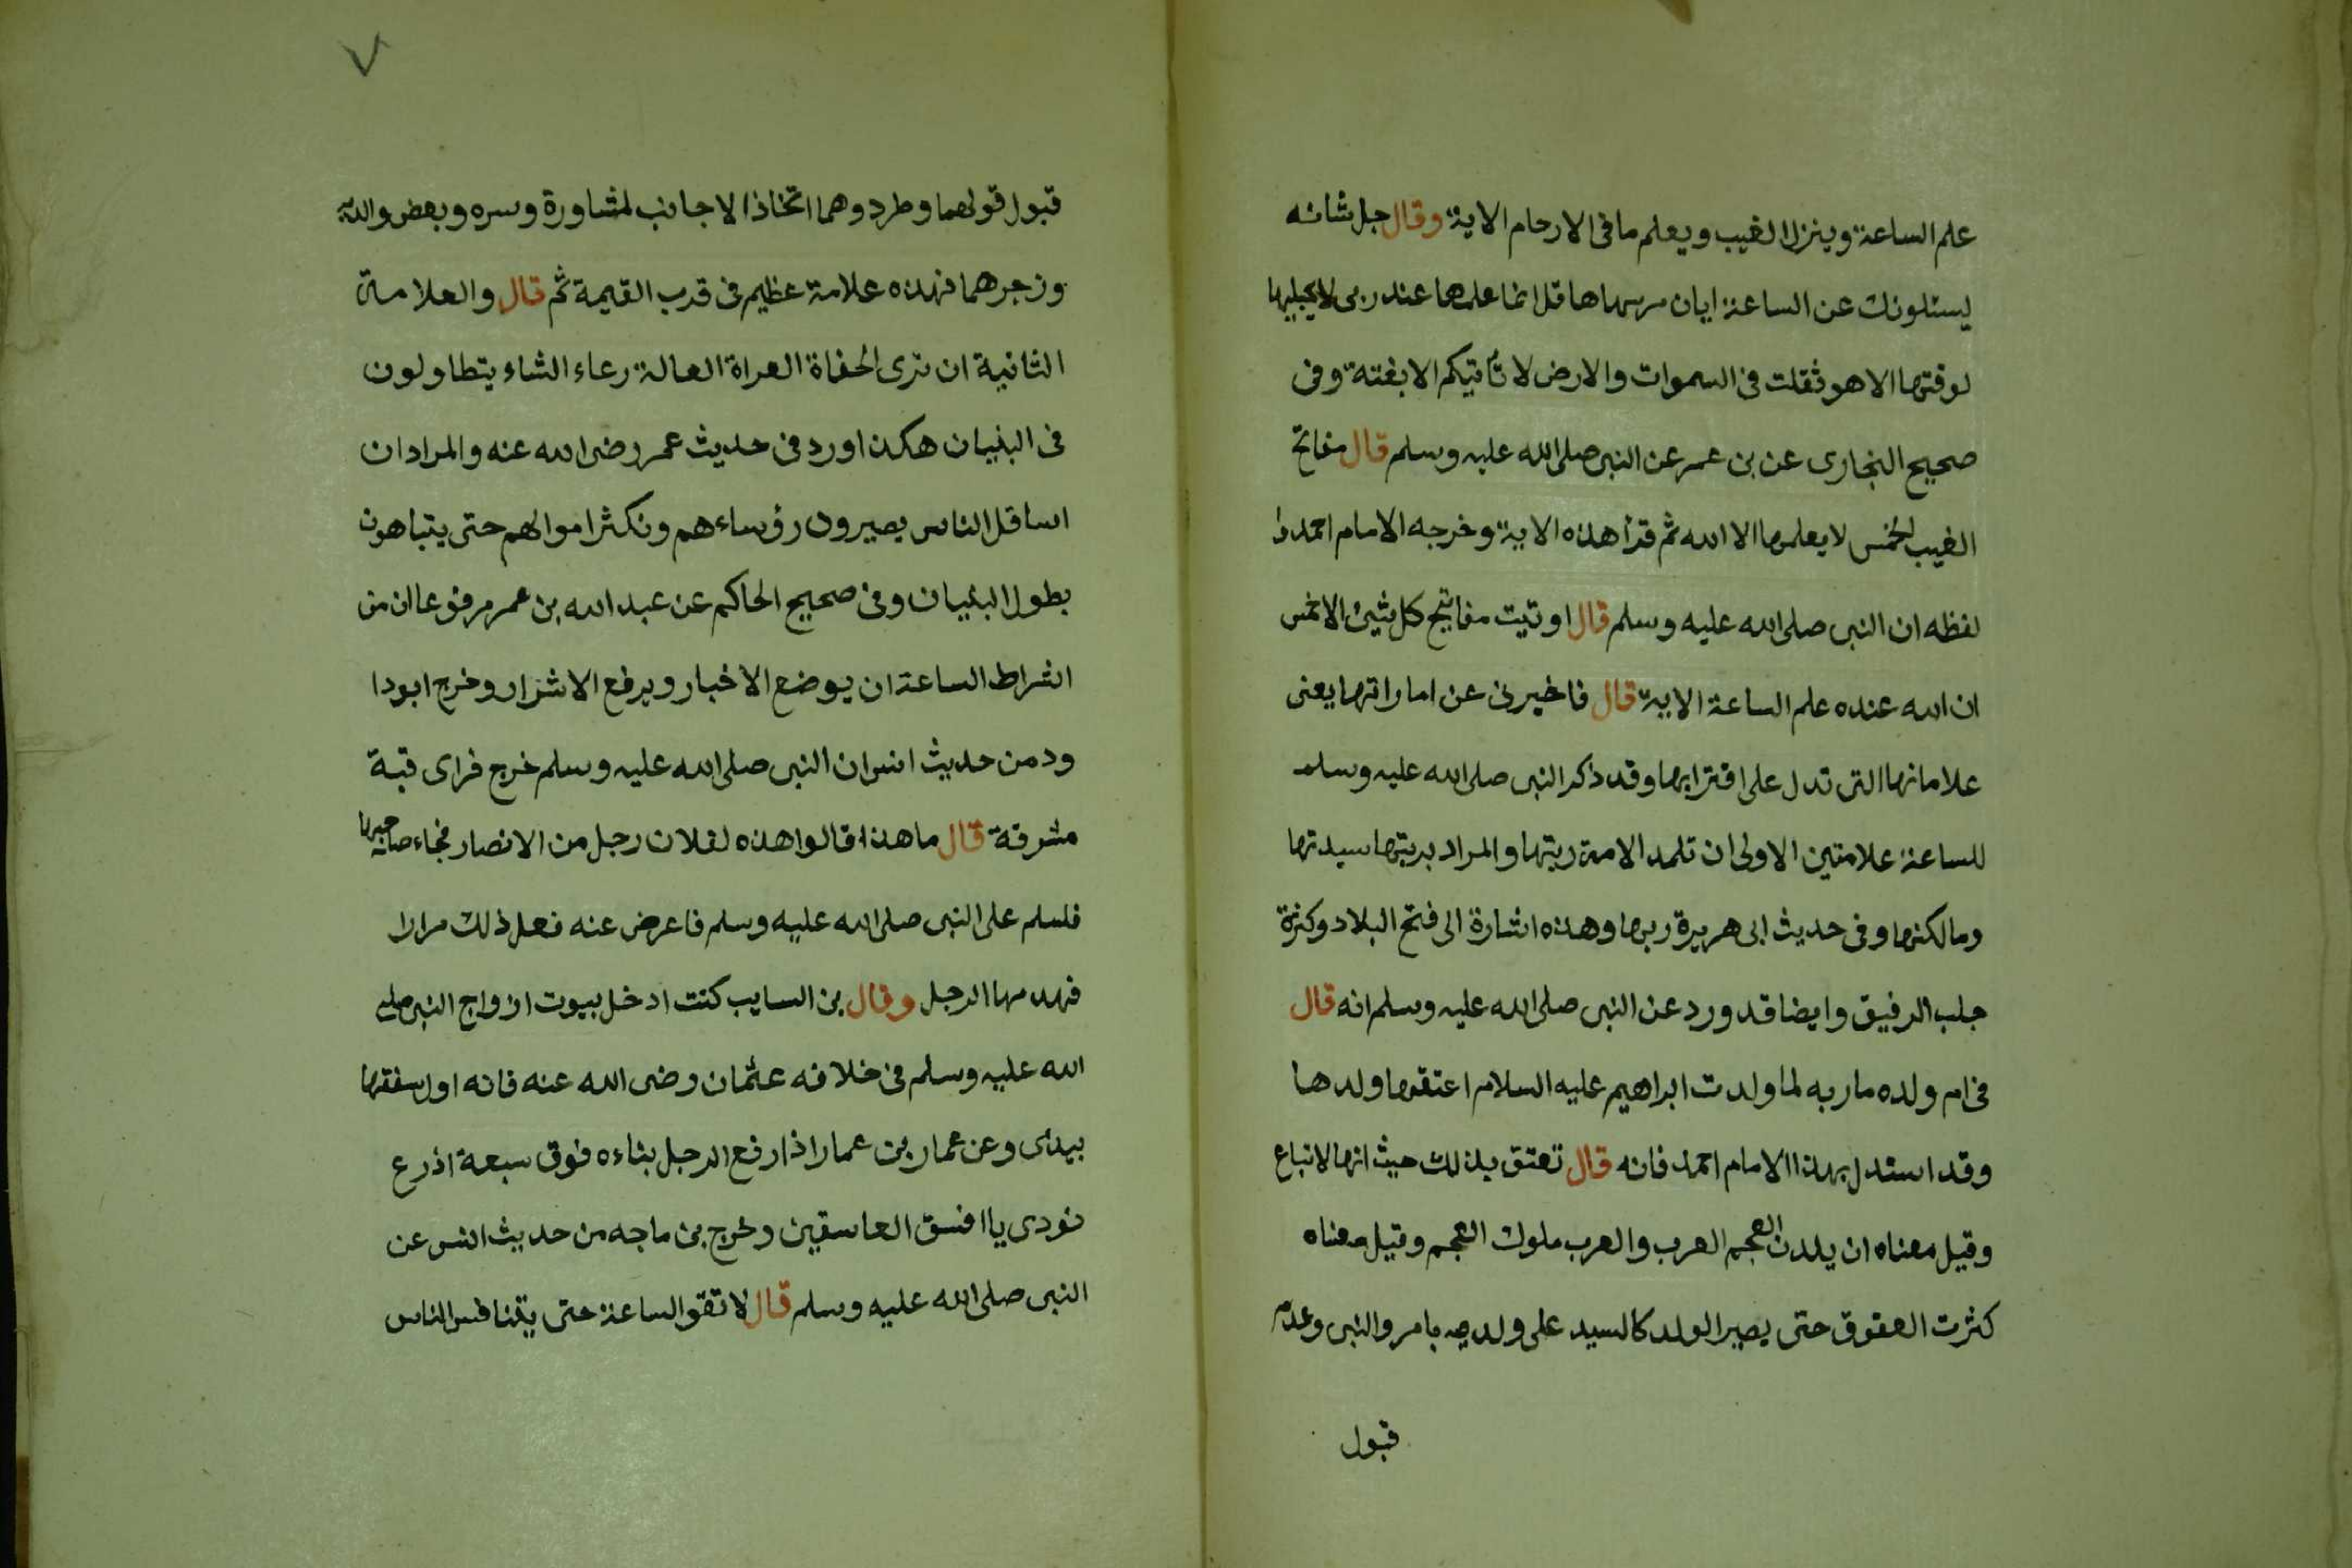 علم الساعة وينزل الغيب ويعلم ما فى الارحام الاية وقال جل شانه
يسئلونك عن الساعة ايان مرسها ها قل انما علمها عند ربى لا يجليها
لوقتها الا هو ثقلت فى السموات والارض لا تأتيكم الا بغتة وفى
صحيح البخارى عن بن عمر عن النبى صلى الله عليه وسلم قال مفاتح
الغيب الخمس لا يعلمها الا الله ثم قرأ هذه الاية وخرجه الامام احمد و
لفظه ان النبى صلى الله عليه وسلم قال اوتيت مفاتيح كل شيئ الا خمس
ان الله عنده علم الساعة الاية قال فاخبرنى عن اماراتها يعنى
علاماتها التى تدل على اقترابها وقد ذكر النبى صلى الله عليه وسلم
للساعة علامتين الاولى ان تلد الامة ربتها والمراد بربتها سيدتها
ومالكتها وفى حديث ابى هريرة ربها وهذه اشارة الى فتح البلاد وكثرة
جلب الرفيق وايضا قد ورد عن النبى صلى الله عليه وسلم انه قال
فى ام ولده ماريه لما ولدت ابراهيم عليه السلام اعتقها ولدها
وقد استدل بهذا الامام احمد فانه قال تعتق بذلك حيث انها لا تباع
وقيل معناه ان يلدن العجم العرب والعرب ملوك العجم وقيل معناه
كثرت العقوق حتى يصير الولد كالسيد على ولديه بامر والنهى وعدم
قبول
٧
قبول قولهما وطردوهما اتخاذا الاجانب لمشاورة وسره وبعض والديه
وزجرهما فهذه علامة عظيم فى قرب القيمة ثم قال والعلامة
الثانية ان ترى الحفاة العراة العالة رعاء الشاء يتطاولون
فى البنيان هكذا ورد فى حديث عمر رضى الله عنه والمراد ان
اسافل الناس يصيرون رؤساءهم وتكثر اموالهم حتى يتباهون
بطول البنيان وفى صحيح الحاكم عن عبد الله بن عمر مرفوعا ان من
اشراط الساعة ان يوضع الاخيار ويرفع الاشرار وخرج ابودا
ود من حديث انس ان النبى صلى الله عليه وسلم خرج فراى قبة
مشرفة قال ما هذا قالوا هذه لفلان رجل من الانصار فجاء صاحبها
فسلم على النبى صلى الله عليه وسلم فاعرض عنه فعل ذلك مرارا
فهدمها الرجل وقال بن السايب كنت ادخل بيوت ازواج النبى صلى
الله عليه وسلم فى خلافه عثمان رضى الله عنه فانه اول سقفها
بيدى وعن عمار بن عمار اذا رفع الرجل بناءه فوق سبعة اذرع
نودى يا افسق الفاسقين وخرج بن ماجه من حديث انس عن
النبى صلى الله عليه وسلم قال لا تقو الساعة حتى يتنافس الناس